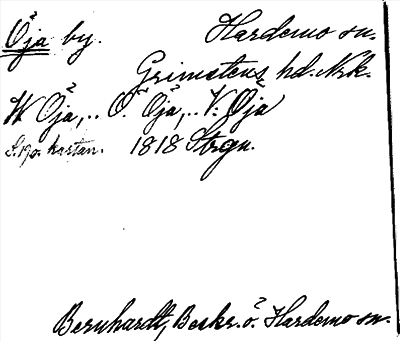 Öja by. Hardemo sn.
Grimstens hd. Nrk.
W Öja,.. Ö. Öja,.. V. Öja
kartan. 1818 Strgn.
Bernhardt, Beskr. ö. Hardemo sn.